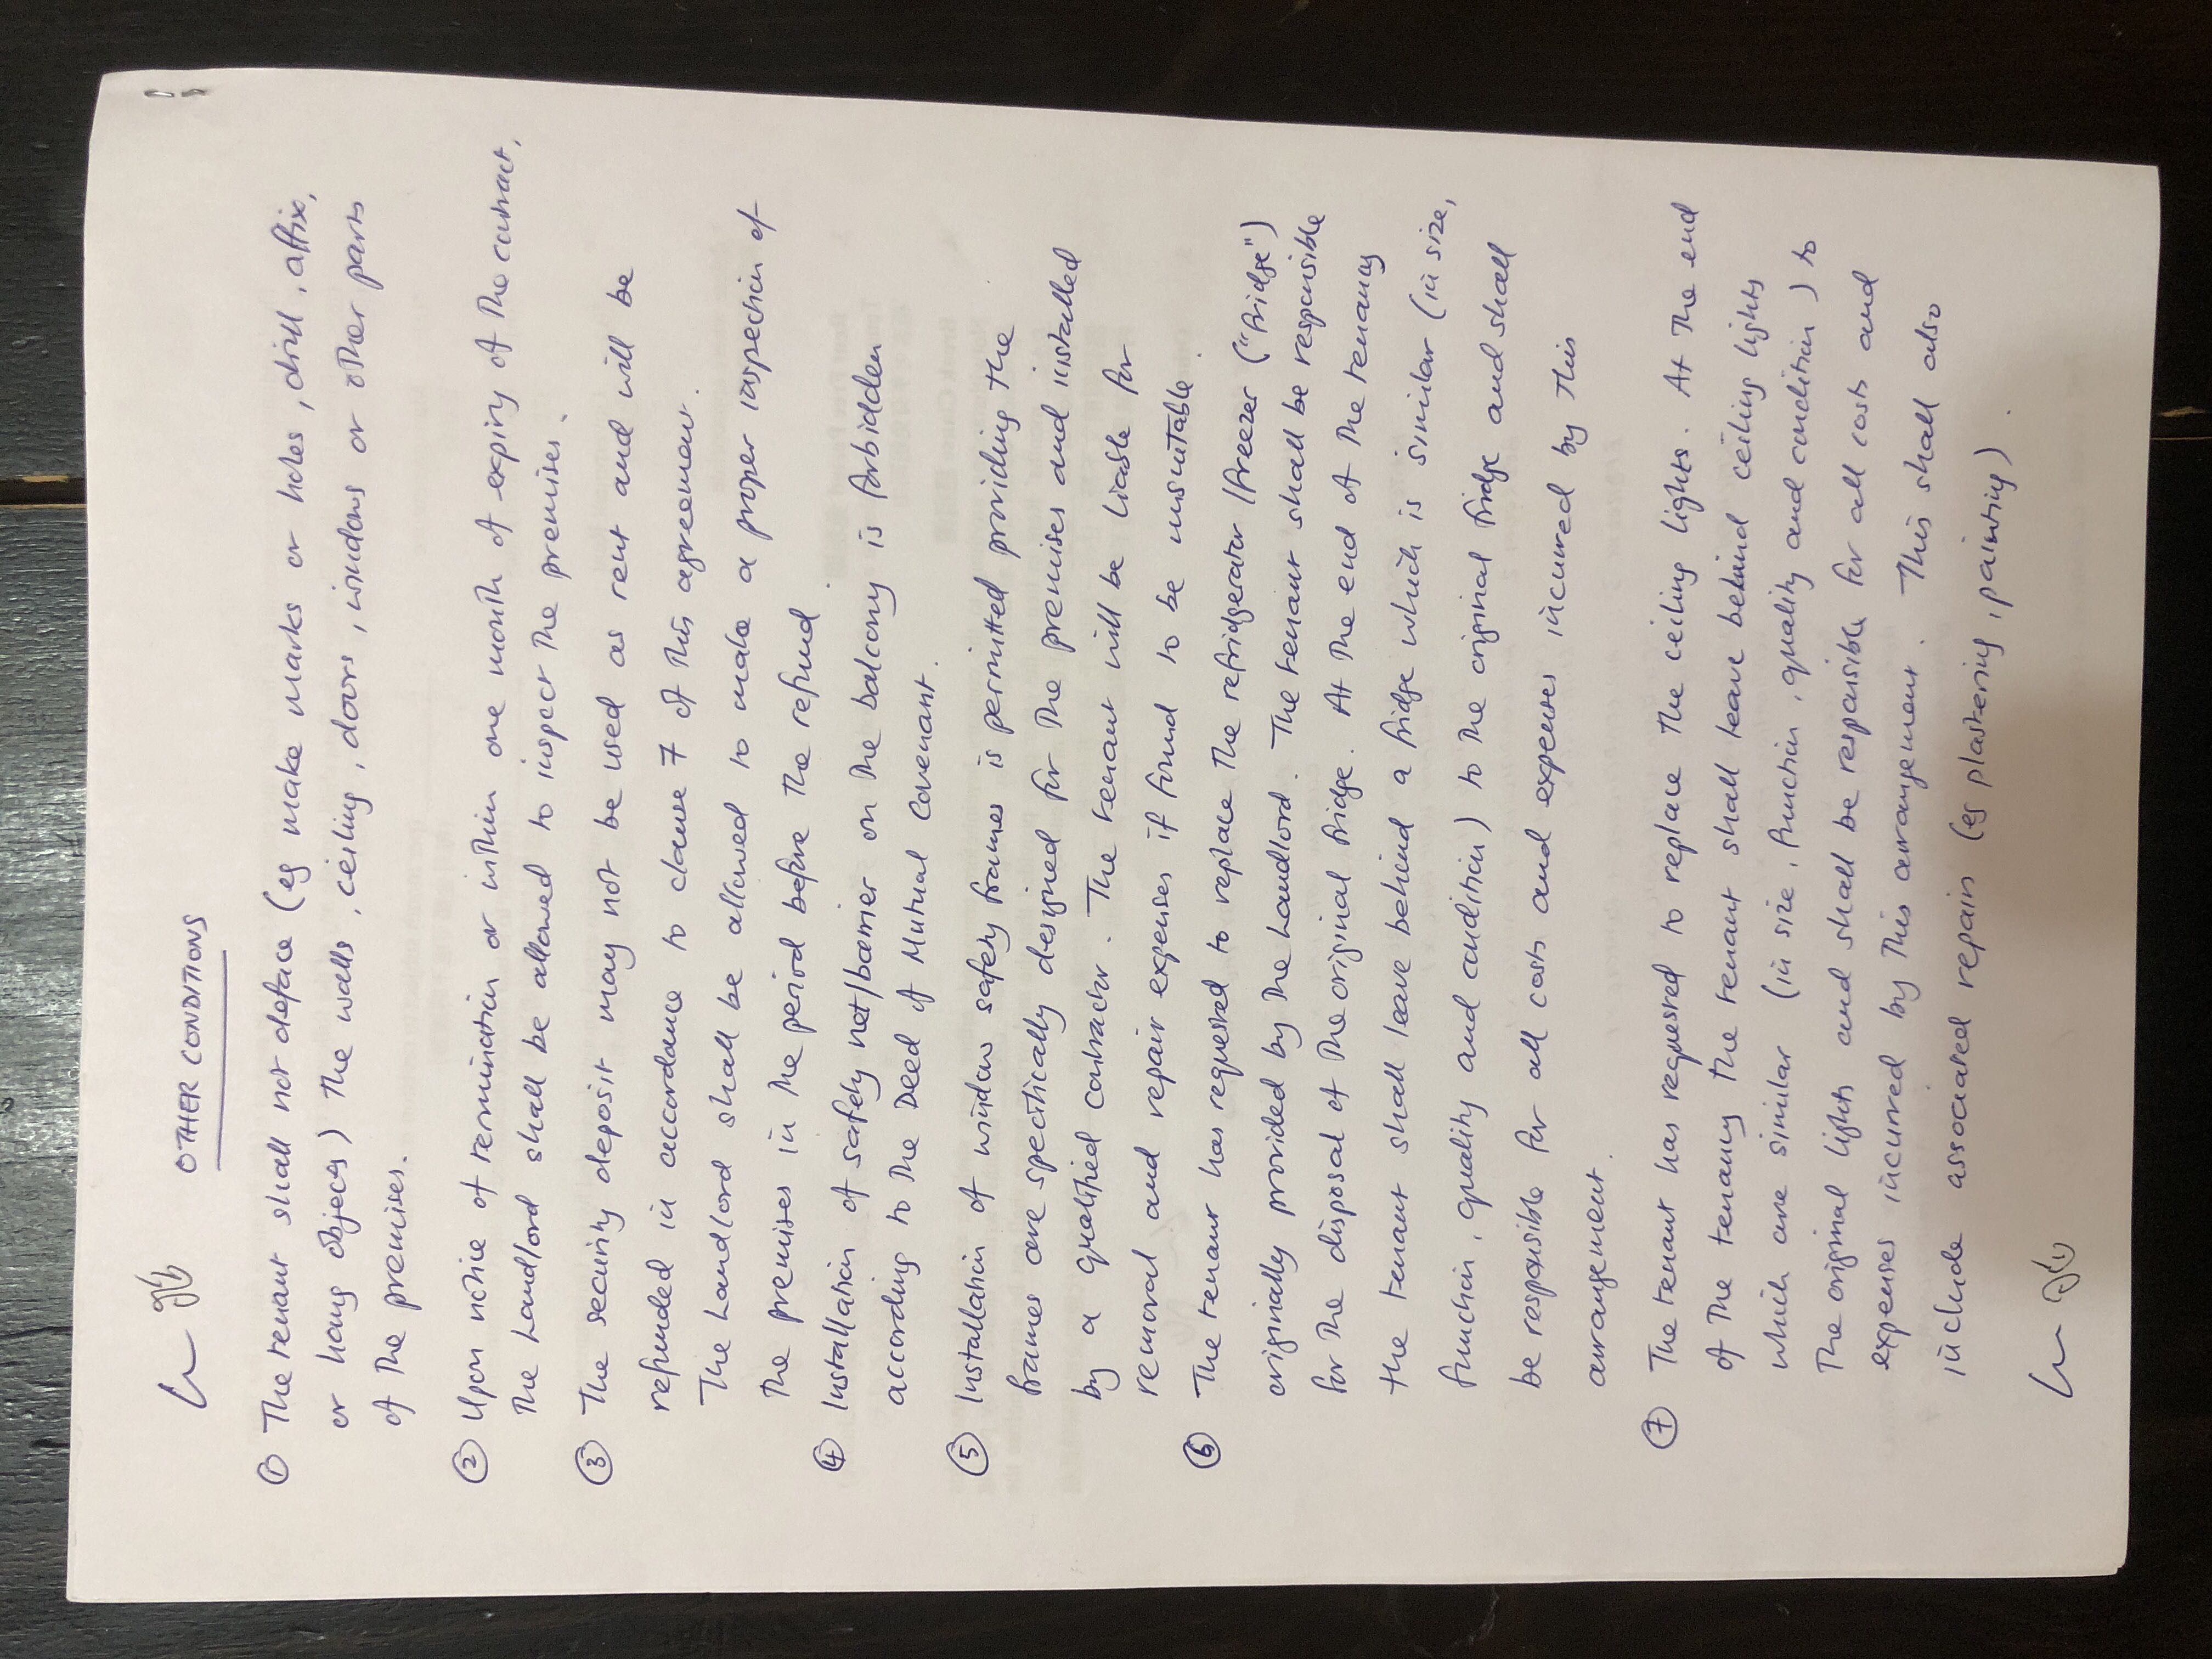 OTHER CONDITIONS
① The tenant shall not deface (eg make marks or holes, drill, affix,
or hang objects) the walls, ceiling, doors, windows or other parts
of the premises.
② Upon notice of termination or within one month of expiry of the contract,
the Landlord shall be allowed to inspect the premises.
③ The security deposit may not be used as rent and will be
refunded in accordance to clause 7 of this agreement.
The Landlord shall be allowed to make a proper inspection of
the premises in the period before the refund.
④ Installation of safety net/barrier on the balcony is forbidden
according to the Deed of Mutual Covenant.
⑤ Installation of window safety frames is permitted providing the
frames are specifically designed for the premises and installed
by a qualified contractor. The tenant will be liable for
removal and repair expenses if found to be unsuitable.
⑥ The tenant has requested to replace the refridgerator/freezer ("fridge")
originally provided by the Landlord. The tenant shall be responsible
for the disposal of the original fridge. At the end of the tenancy
the tenant shall leave behind a fridge which is similar (in size,
function, quality and condition) to the original fridge and shall
be responsible for all costs and expenses incurred by this
arrangement.
⑦ The tenant has requested to replace the ceiling lights. At the end
of the tenancy the tenant shall leave behind ceiling lights
which are similar (in size, function, quality and condition) to
the original lights and shall be responsible for all costs and
expenses incurred by this arrangement. This shall also
include associated repair (eg plastering, painting).